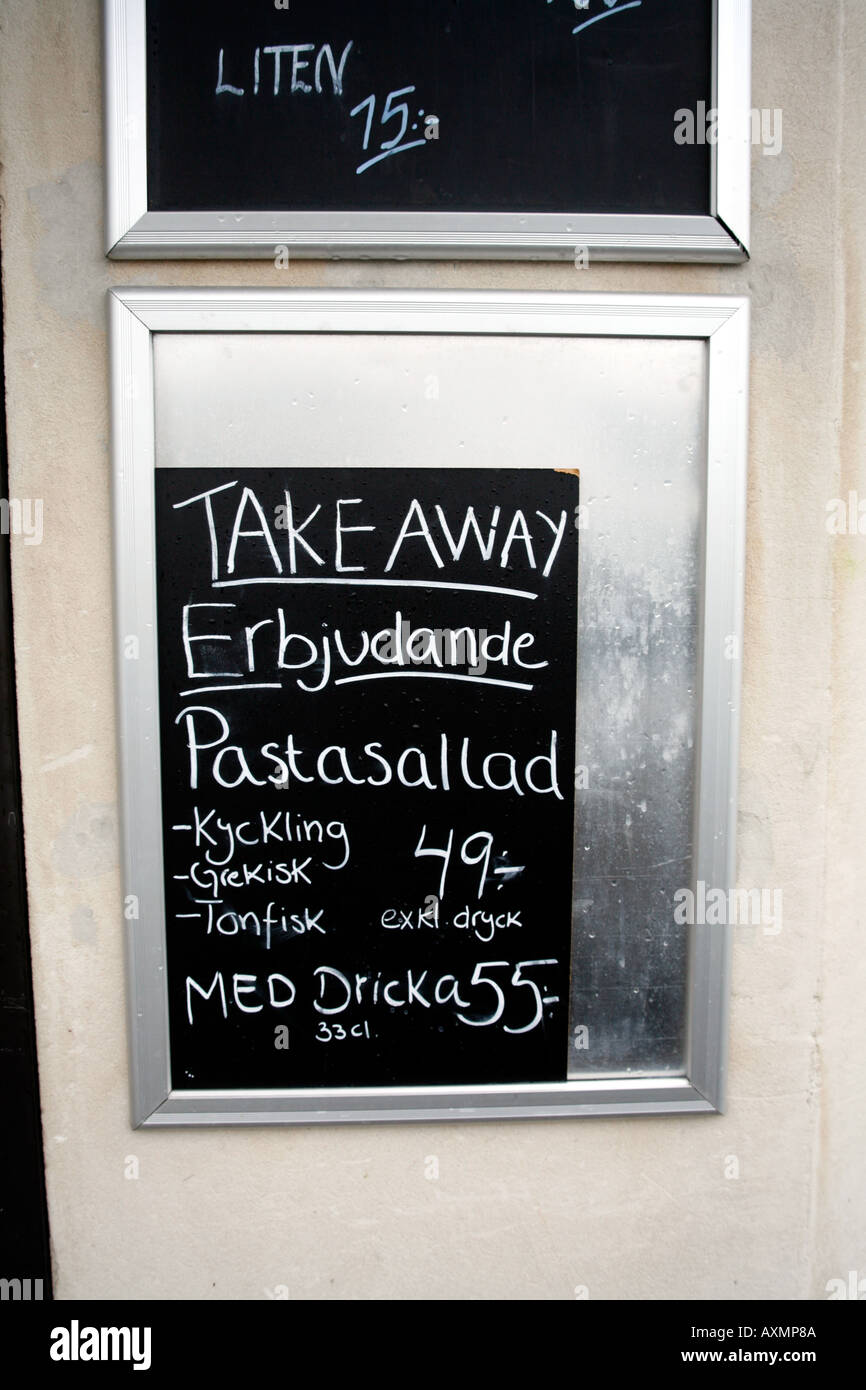 LITEN
15:-
TAKE AWAY
Erbjudande
Pastasallad
-Kyckling
-Grekisk
-Tonfisk
49:-
exkl. dryck
MED Dricka 55:-
33cl.
alamy
Image ID: AXMP8A
www.alamy.com